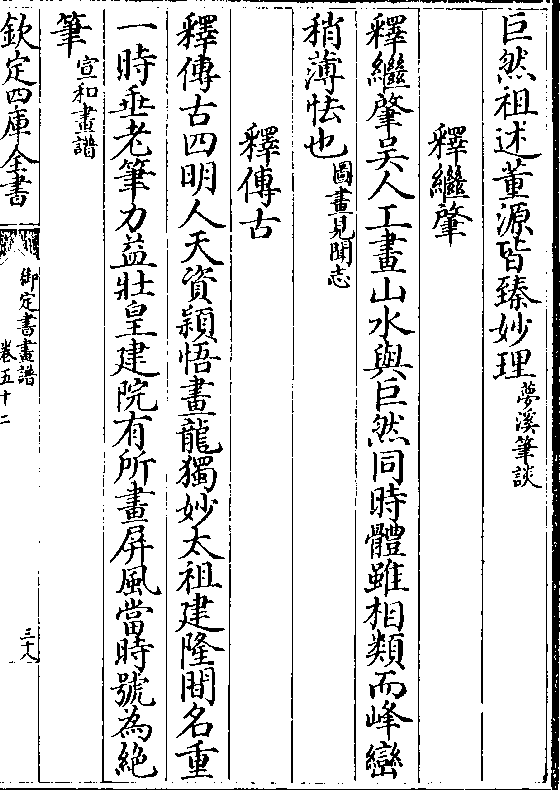 巨然祖述董源皆臻妙理夢溪筆談
釋繼肇
釋繼肇吳人工畫山水與巨然同時體雖相類而峰巒
稍薄怯也圖畫見聞志
釋傳古
釋傳古四明人天資穎悟畫龍獨妙太祖建隆間名重
一時垂老筆力益壯皇建院有所畫屏風當時號為絶
筆宣和畫譜
欽定四庫全書
御定書畫譜
卷五十二
三十八